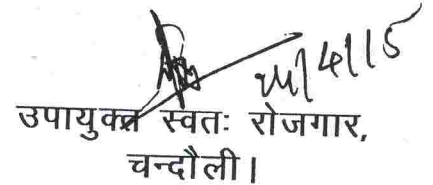 24/4/15
उपायुक्त स्वतः रोजगार,
चन्दौली।